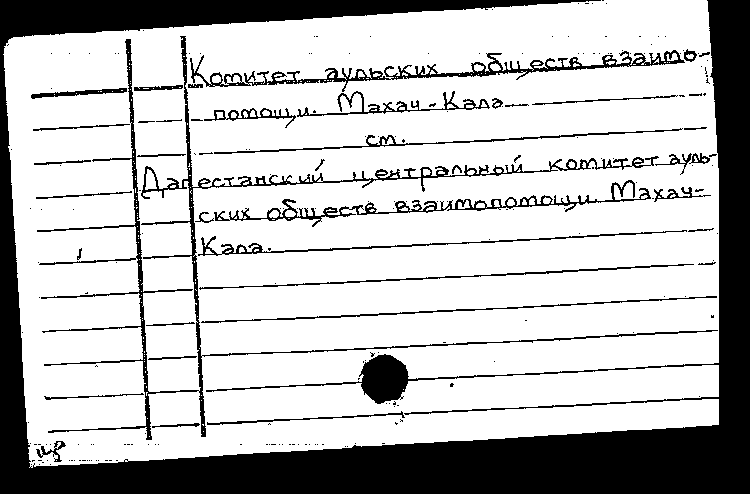 Комитет аульских обществ взаимо-
помощи. Махач-Кала
см.
Дагестанский центральный комитет ауль-
ских обществ взаимопомощи. Махач-
Кала.